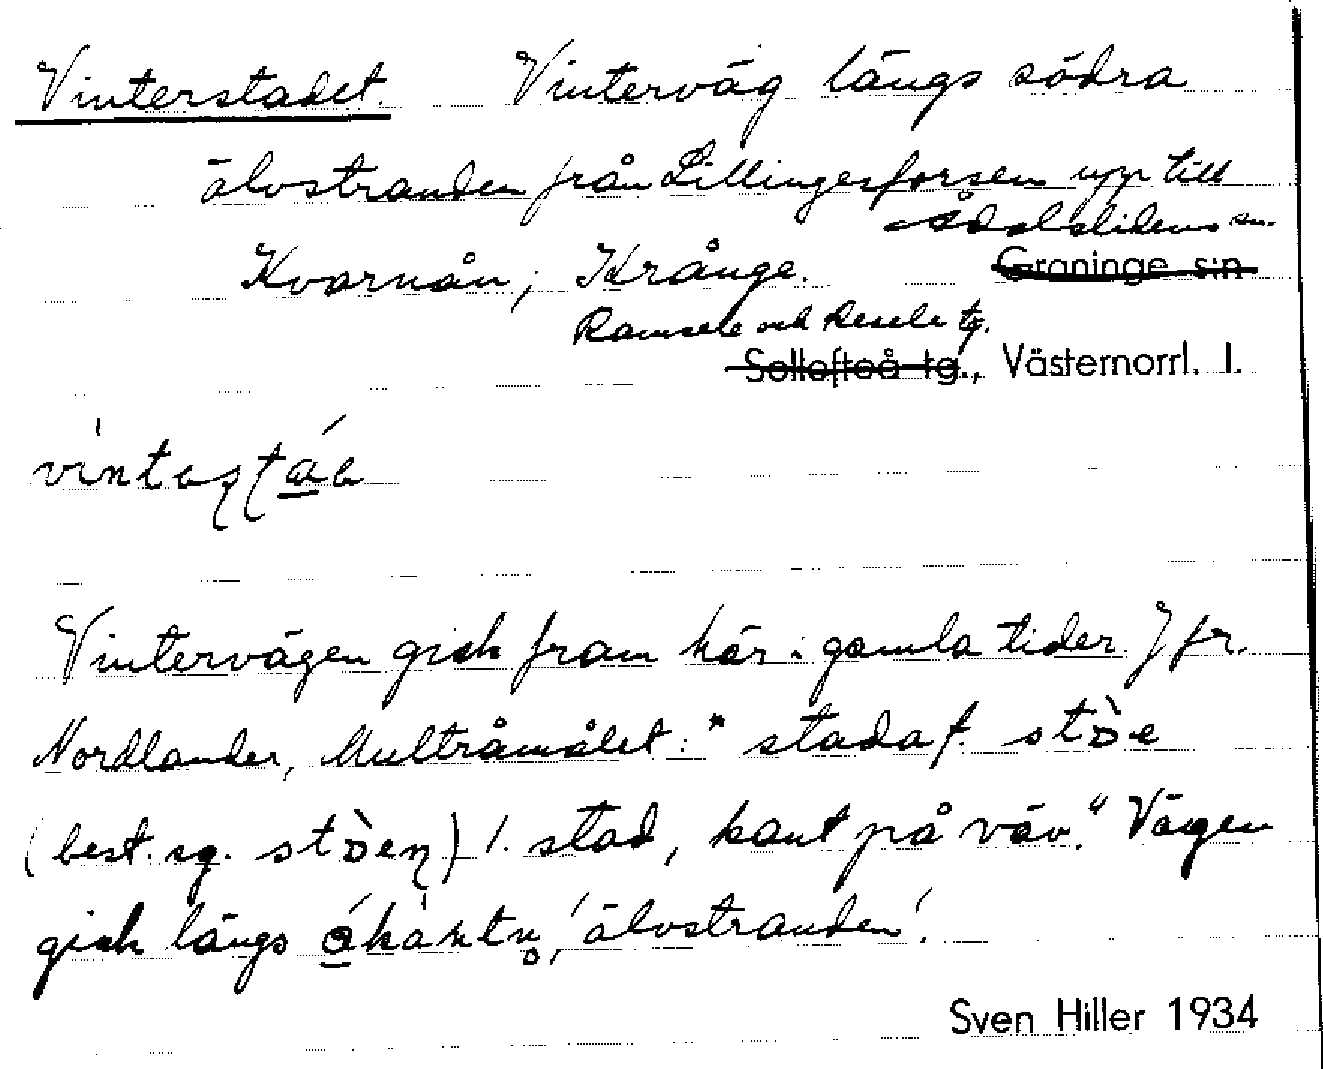 Vinterstadet. Vinterväg längs södra
älvstranden från Lillingesforsen upp till
Ådalslidens sn.
Kvarnån, Krånge. Graninge s:n
Ramsele och Resele tg.
Sollefteå tg., Västernorrl. l.
Vintervägen gick fram här i gamla tider. Jfr.
Nordlander, Multråmålet: "stada f. stòe
(best. sg. stòen) 1. stad, kant på väv." Vägen
gick längs 'älvstranden'.
Sven Hiller 1934